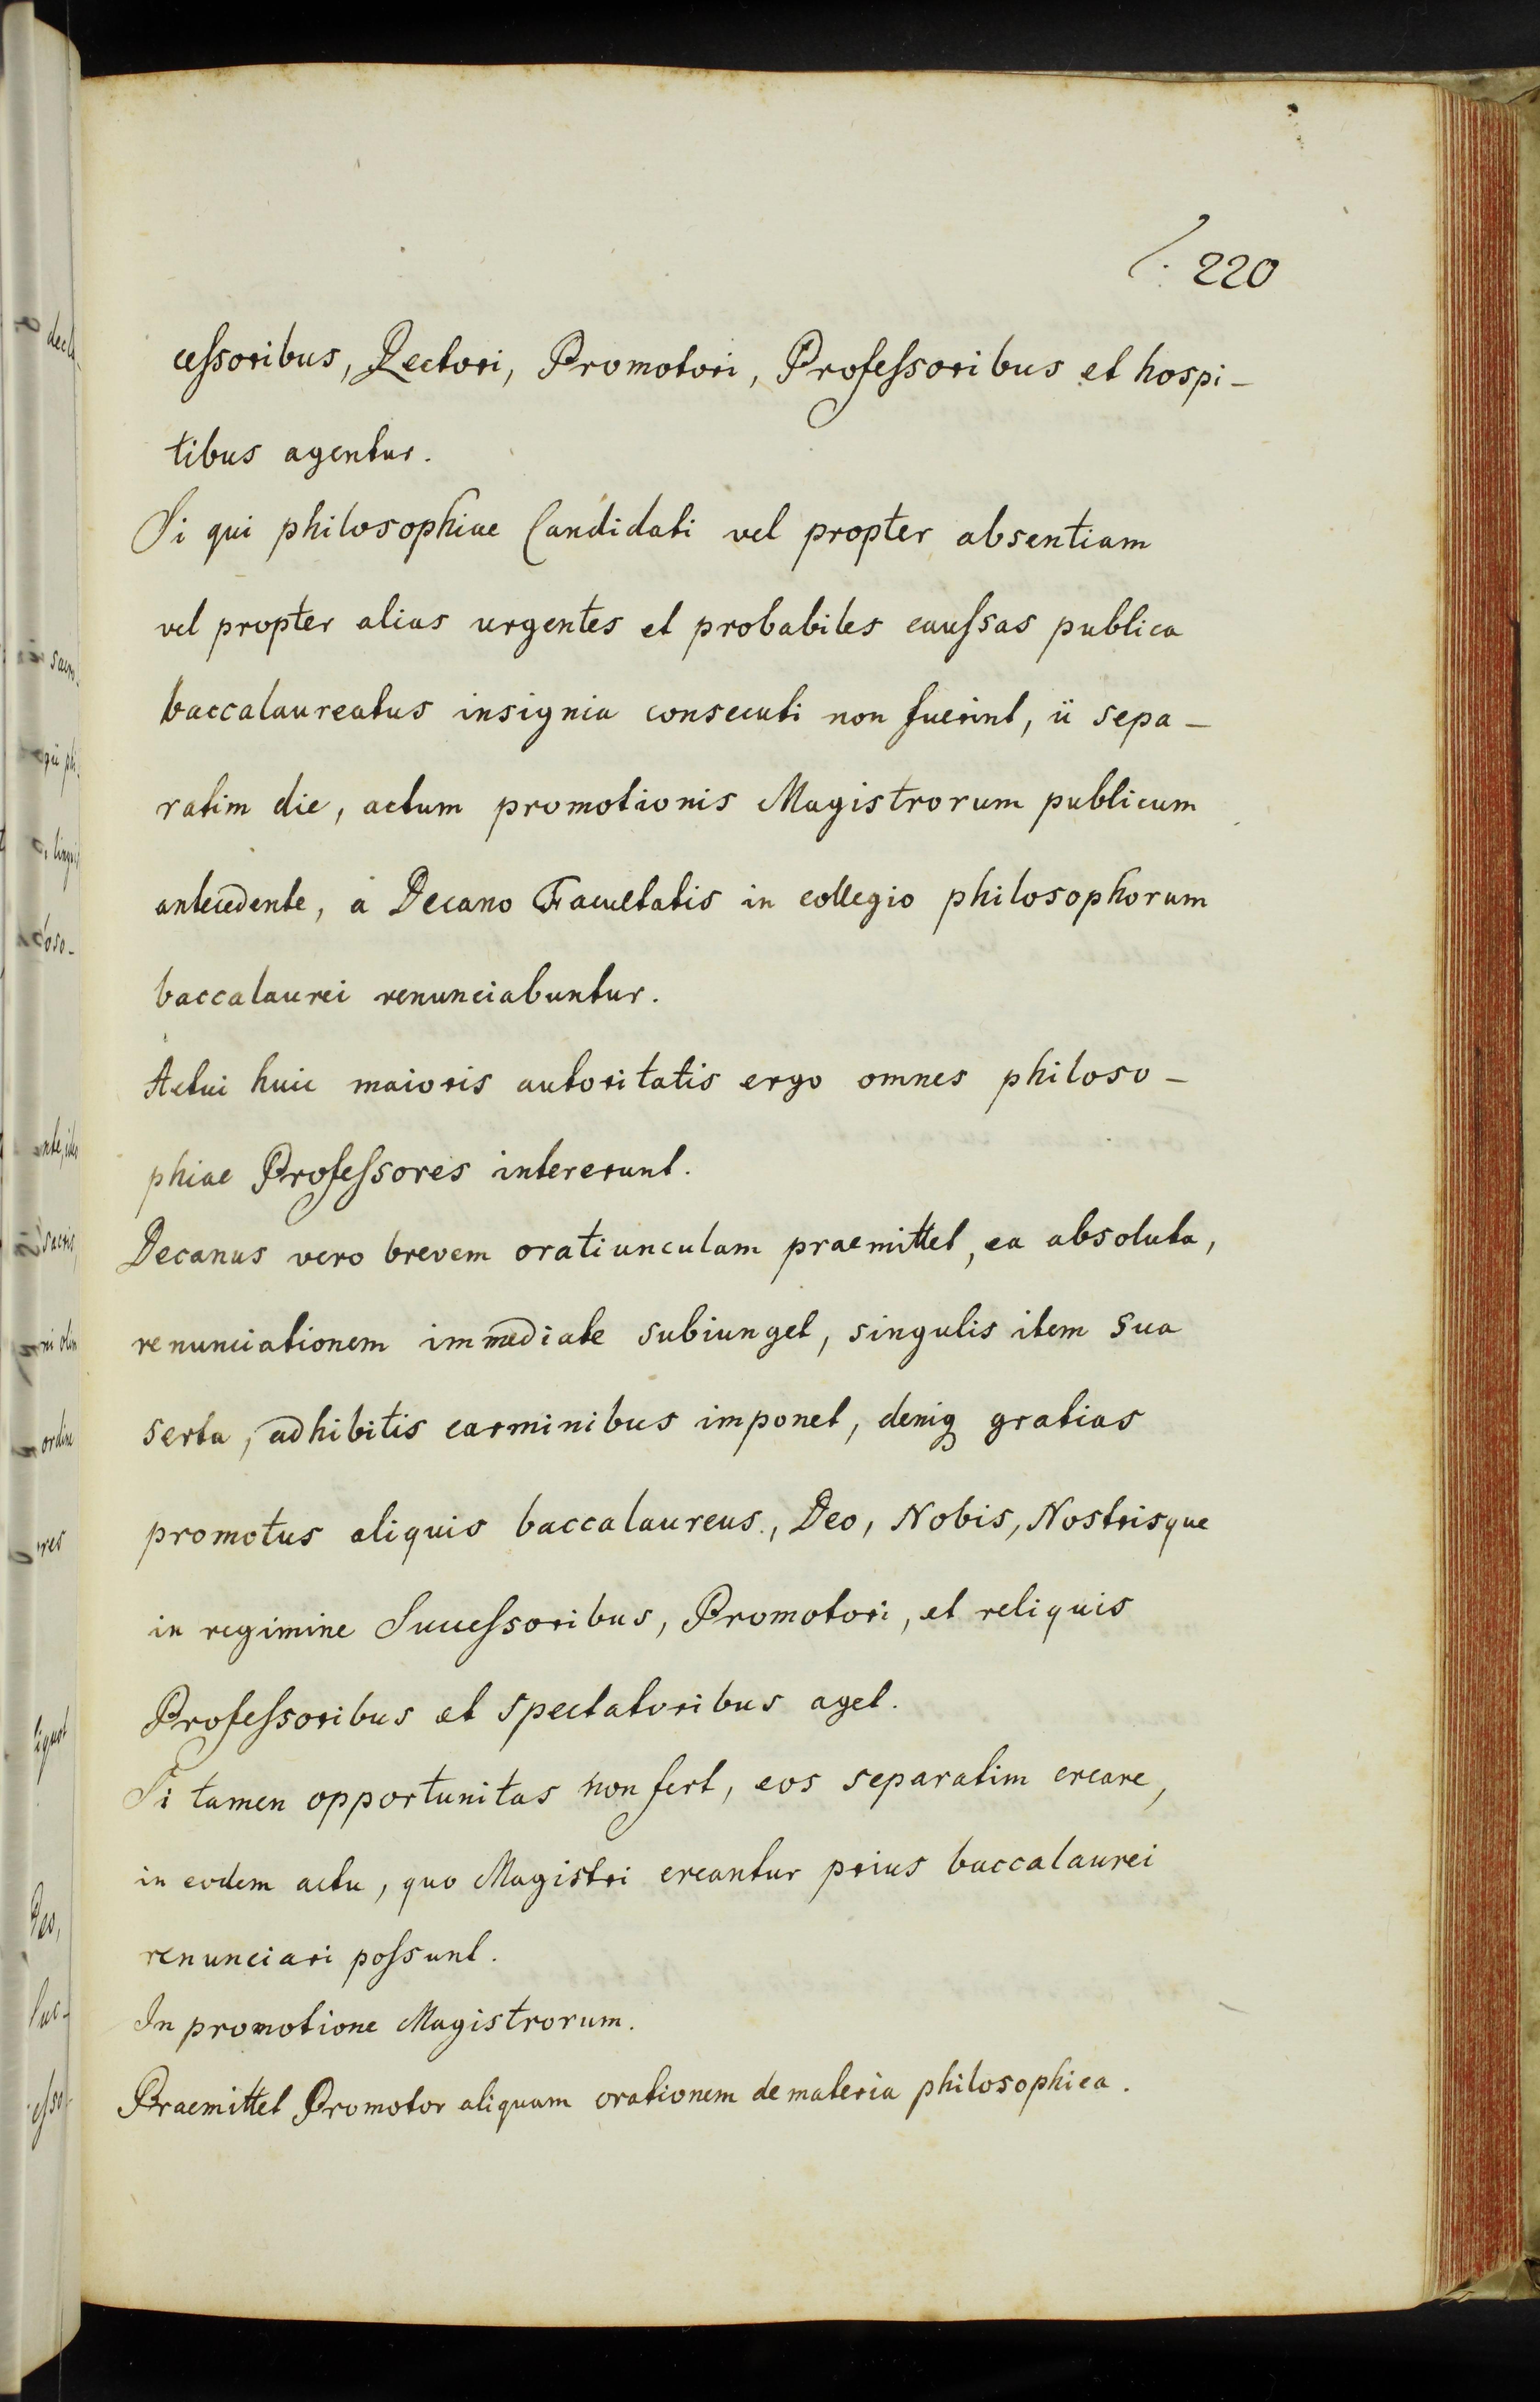 220
ceſsoribus, Rectori, Promotori, Profeſsoribus et hospi-
tibus agentur.
Si qui philosophiae Candidati vel propter absentiam
vel propter alias urgentes et probabiles cauſsas publica
baccalaureatus insignia consecuti non fuerint, ii sepa-
ratim die, actum promotionis Magistrorum publicum
antecedente, a Decano Facultatis in collegio philosophorum
baccalaurei renunciabuntur.
Actui huic maioris autoritatis ergo omnes philoso-
phiae Profeſsores intererunt.
Decanus vero brevem oratiunculam praemittet, ea absoluta,
renunciationem immediate subiunget, singulis item sua
serta, adhibitis carminibus imponet, deniq gratias
promotus aliquis baccalaureus, Deo, Nobis, Nostrisque
in regimine Succeſsoribus, Promotori, et reliquis
Profeſsoribus et spectatoribus aget.
Si tamen opportunitas non fert, eos separatim creare,
in eodem actu, quo Magistri creantur prius baccalaurei
renunciari poſsunt.
In promotione Magistrorum.
Praemittet Promotor aliquam orationem de materia philosophica.